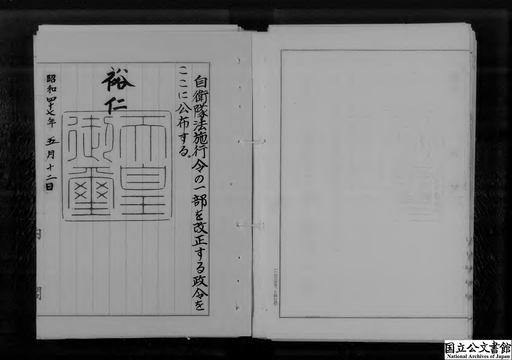 自衛隊法施行令の一部を改正する政令を
ここに公布する。
裕仁
天皇
御璽
昭和四十七年五月十二日
内閣
国立公文書館
National Archives of Japan